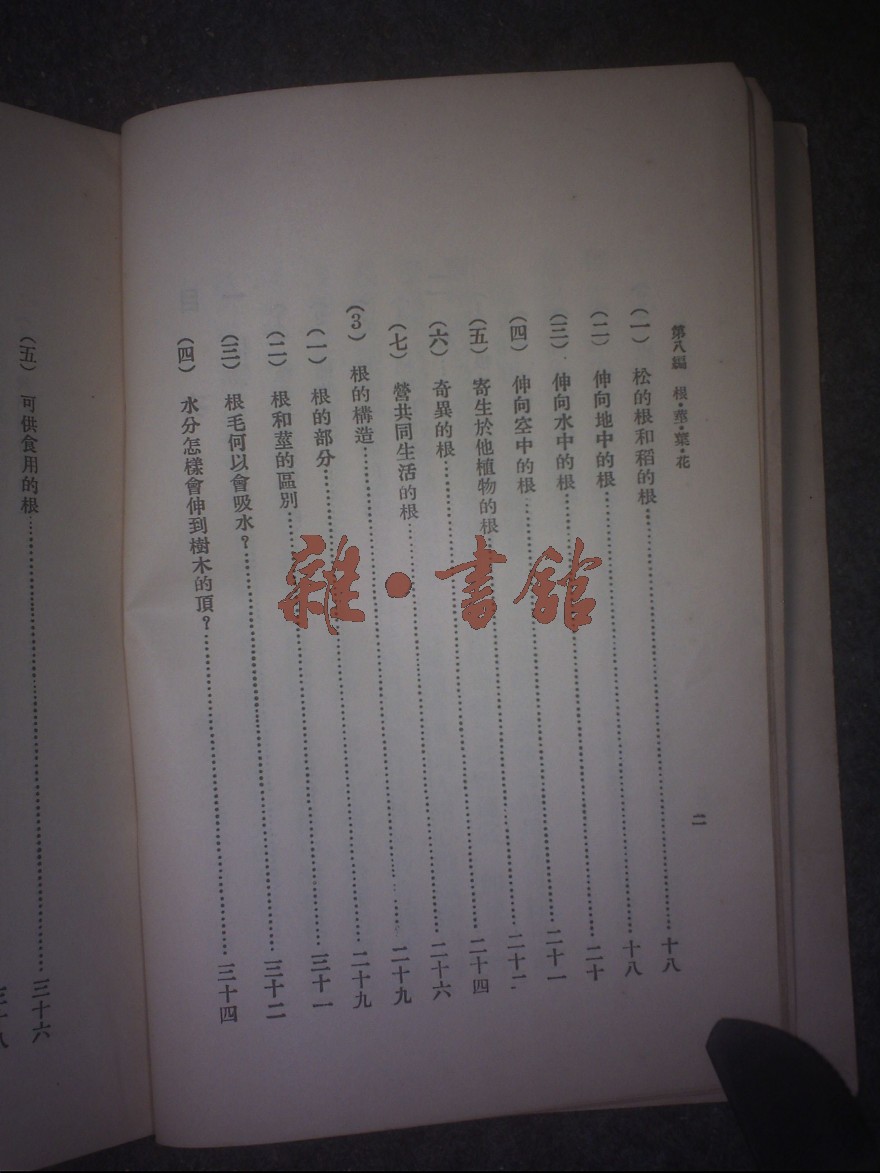 第八編 根·莖·葉·花 二
(一) 松的根和稻的根……十八
(二) 伸向地中的根……十八
(三) 伸向水中的根……二十
(四) 伸向空中的根……二十一
(五) 寄生於他植物的根……二十一
(六) 奇異的根……二十四
(七) 營共同生活的根……二十六
(3) 根的構造……二十九
(一) 根的部分……二十九
(二) 根和莖的區別……三十一
(三) 根毛何以會吸水?……三十二
(四) 水分怎樣會伸到樹木的頂?……三十四
(五) 可供食用的根……三十六
雜·書館